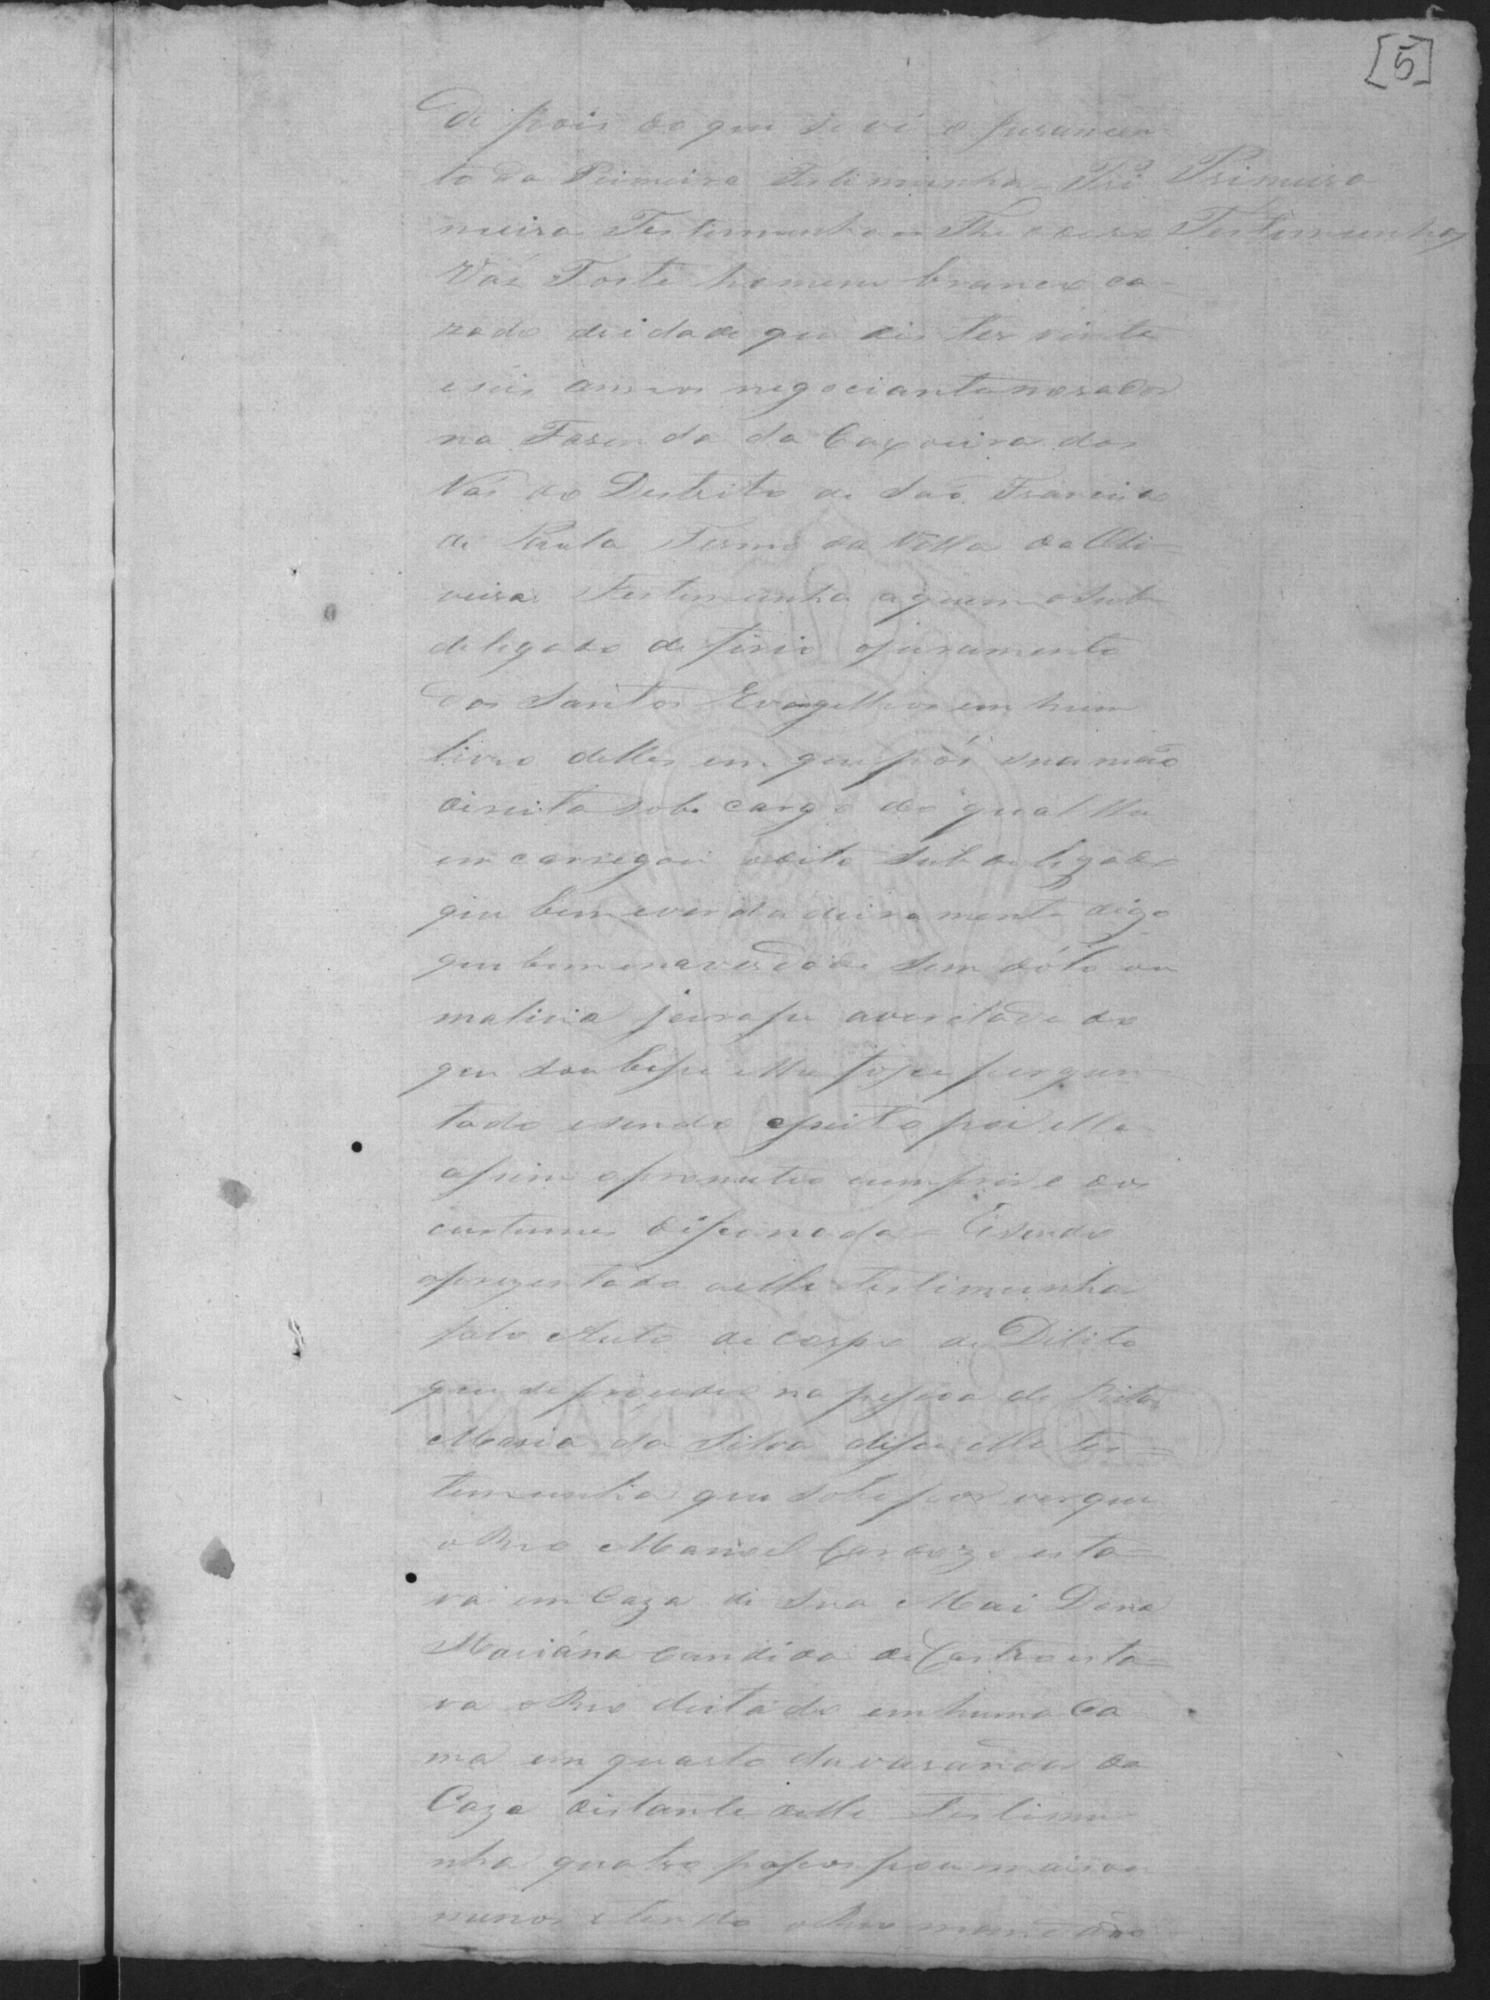 [5]
De pois do que se vi o juramen-
to da Primeira Testimunha = Pri
Primeira
meira Testemunha = Theodoro
Testemunha
Vás Toste homem branco ca-
zado de idade que dis ter vinte
e seis annos negociante morador
na Fasenda da Caxoeira dos
Vás do Destrito de São Francisco
de Paula Termo da Villa da Oli-
veira Testemunha aquem o Sub
delegado defirio ojuramento
dos Santos Evangelhos em hum
livro delles em que pôs sua mão
direita sob cargo do qual lhe
encarregou odito Subdelegado
que bem everdadeiramente digo
que bem enaverdade sem dólo ou
malicia jurasse averdade do
que soubesse elhe fosse pergun-
tado esendo aseito por elle
assim oprometeo cumprir e dos
custumes disse nada = Esendo
aprezentado aelle testimunha
pelo Auto de corpo de Dilito
que se procedeo na pessoa de Rita
Maria da Silva disse elle tes-
temunha que sabe por ver que
o Reo Manoel Cardozo esta-
va em Caza de sua Mai Dona
Mariána Candida de Castro esta-
va o Reo deitado em huma Ca
ma em quarto da varanda da
Caza distante delle testimu
nha quatro passos pou mais ou
menos e tendo o Reo